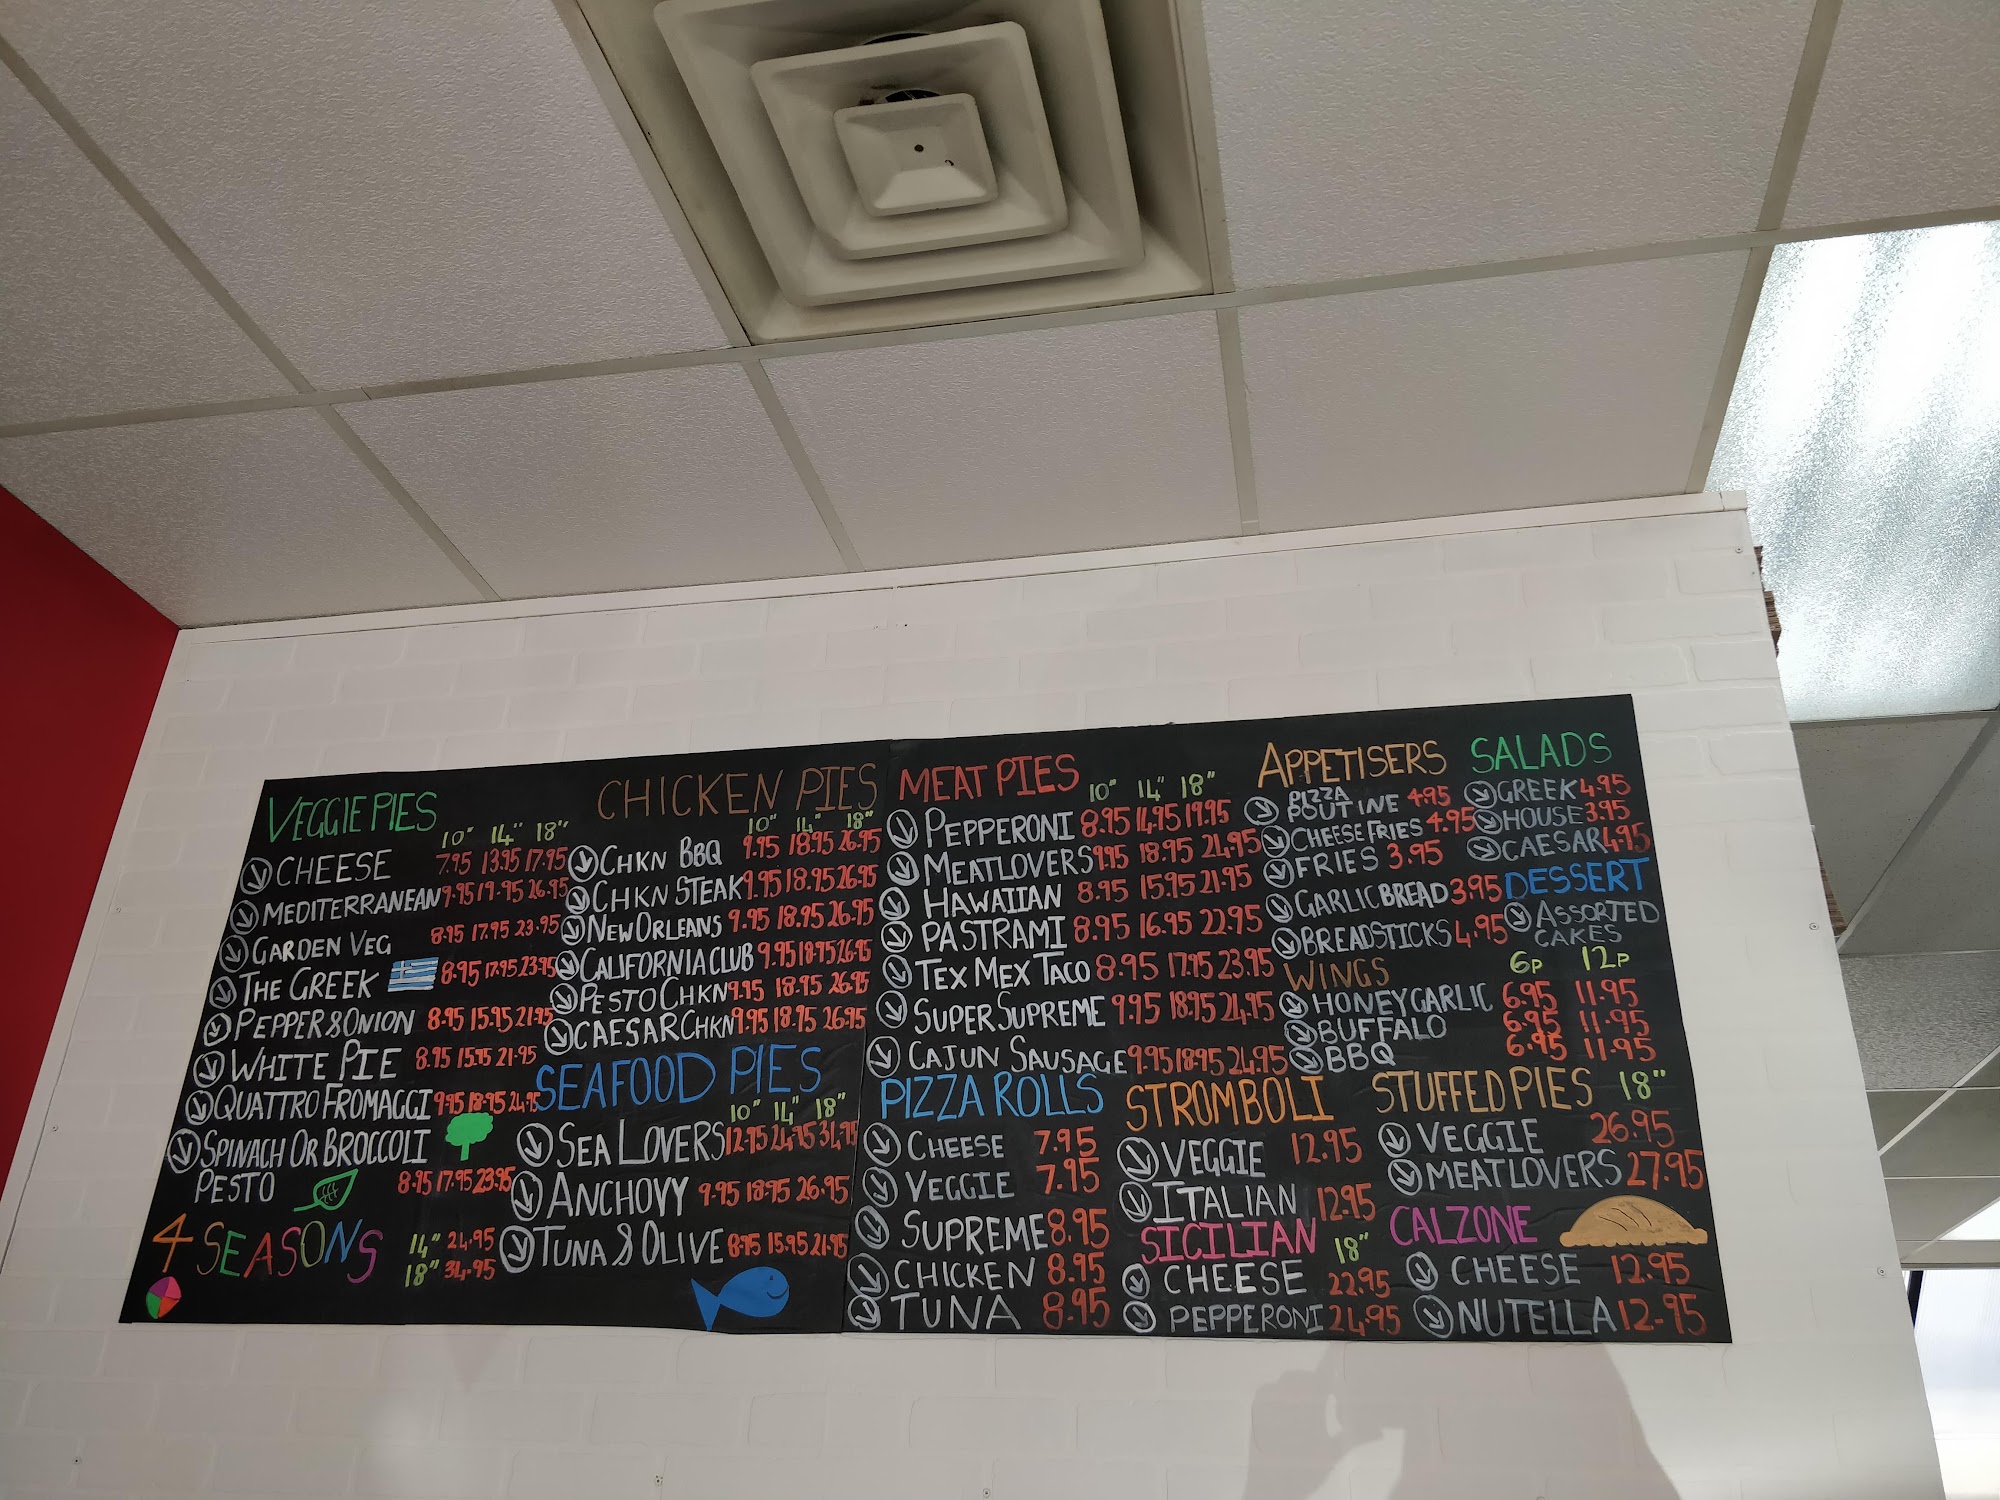 VEGGIE PIES
10" 14" 18"
CHEESE 7.95 13.95 17.95
MEDITERRANEAN 9.95 19.95 26.95
GARDEN VEG 8.95 17.95 23.95
THE GREEK 8.95 17.95 23.95
PEPPER & ONION 8.95 15.95 21.95
WHITE PIE 8.95 15.95 21.95
QUATTRO FROMAGGI 9.95 18.95 24.95
SPINACH OR BROCCOLI
PESTO 8.95 17.95 23.95
4 SEASONS 14" 24.95
18" 34.95
CHICKEN PIES
10" 14" 18"
CHKN BBQ 9.95 18.95 26.95
CHKN STEAK 9.95 18.95 26.95
NEW ORLEANS 9.95 18.95 26.95
CALIFORNIA CLUB 9.95 18.95 26.95
PESTO CHKN 9.95 18.95 26.95
CAESAR CHKN 9.95 18.95 26.95
SEAFOOD PIES
10" 14" 18"
SEA LOVERS 12.95 24.95 31.95
ANCHOVY 9.95 18.95 26.95
TUNA & OLIVE 8.95 15.95 21.95
MEAT PIES 10" 14" 18"
PEPPERONI 8.95 14.95 19.95
MEATLOVERS 9.95 18.95 24.95
HAWAIIAN 8.95 15.95 21.95
PASTRAMI 8.95 16.95 22.95
TEX MEX TACO 8.95 17.95 23.95
SUPER SUPREME 9.95 18.95 24.95
CAJUN SAUSAGE 9.95 18.95 24.95
PIZZA ROLLS
CHEESE 7.95
VEGGIE 7.95
SUPREME 8.95
CHICKEN 8.95
TUNA 8.95
APPETISERS
PIZZA
POUTINE 4.95
CHEESE FRIES 4.95
FRIES 3.95
GARLIC BREAD 3.95
BREADSTICKS 4.95
WINGS 6P 12P
HONEY GARLIC 6.95 11.95
BUFFALO 6.95 11.95
BBQ 6.95 11.95
SALADS
GREEK 4.95
HOUSE 3.95
CAESAR 4.95
DESSERT
ASSORTED
CAKES
STROMBOLI
VEGGIE 12.95
ITALIAN 12.95
SICILIAN 18"
CHEESE 22.95
PEPPERONI 24.95
STUFFED PIES 18"
VEGGIE 26.95
MEATLOVERS 27.95
CALZONE
CHEESE 12.95
NUTELLA 12.95